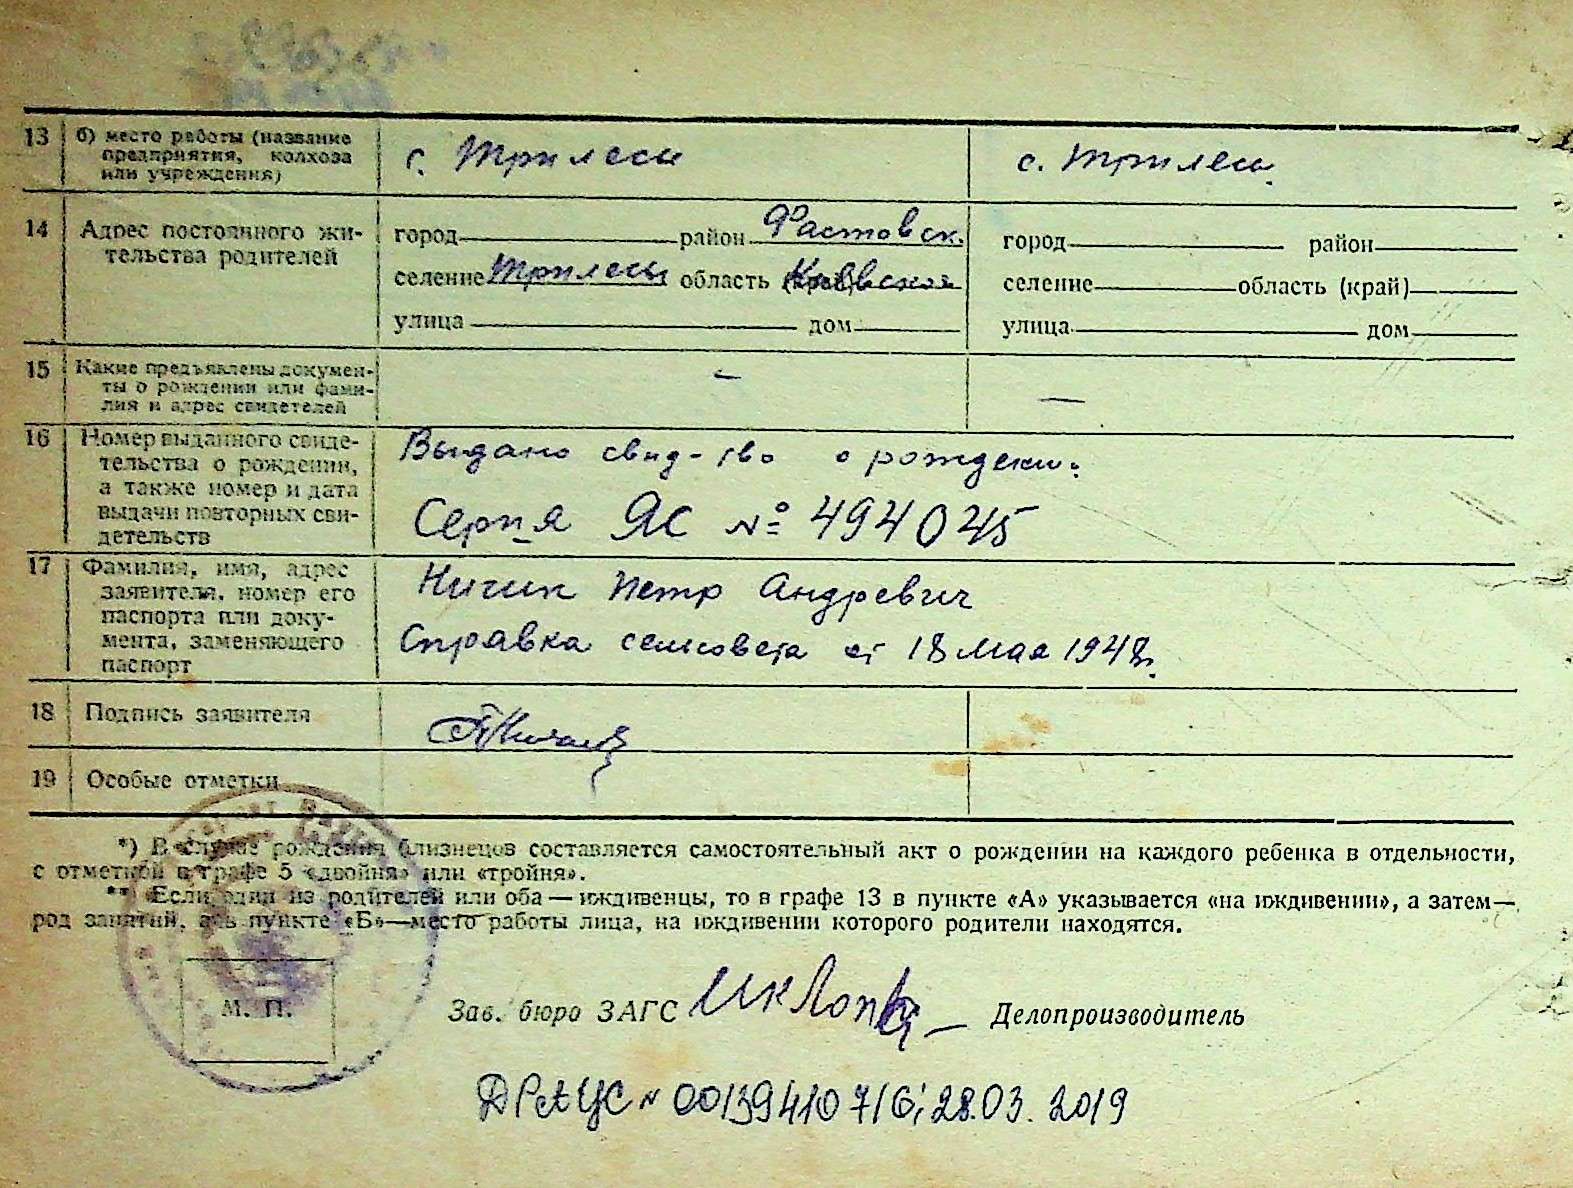 13 б) место работы (название
предприятия, колхоза
или учреждения)
с. Трилеси
с. Трилеси
14 Адрес постоянного жи-
тельства родителей
город район Фастовск.
селение Трилесы область (край) Киевская
улица дом
город район
селение область (край)
улица дом
15 Какие предъявлены докумен-
ты о рождении или фами-
лия и адрес свидетелей
—
—
16 Номер выданного свиде-
тельства о рождении,
а также номер и дата
выдачи повторных сви-
детельств
Выдано свид-тво о рождении.
Серия ЯС № 494045
17 Фамилия, имя, адрес
заявителя, номер его
паспорта или доку-
мента, заменяющего
паспорт
Ничик Петр Андревич
Справка сельсовета от 18 мая 1948г.
18 Подпись заявителя
19 Особые отметки
*) В случае рождения близнецов составляется самостоятельный акт о рождении на каждого ребенка в отдельности,
с отметкой в графе 5 «двойня» или «тройня».
** Если один из родителей или оба — иждивенцы, то в графе 13 в пункте «А» указывается «на иждивении», а затем—
род занятий, а в пункте «Б»—место работы лица, на иждивении которого родители находятся.
М. П.
Зав. бюро ЗАГС Делопроизводитель
ДРАЦС № 00139410716; 28.03.2019